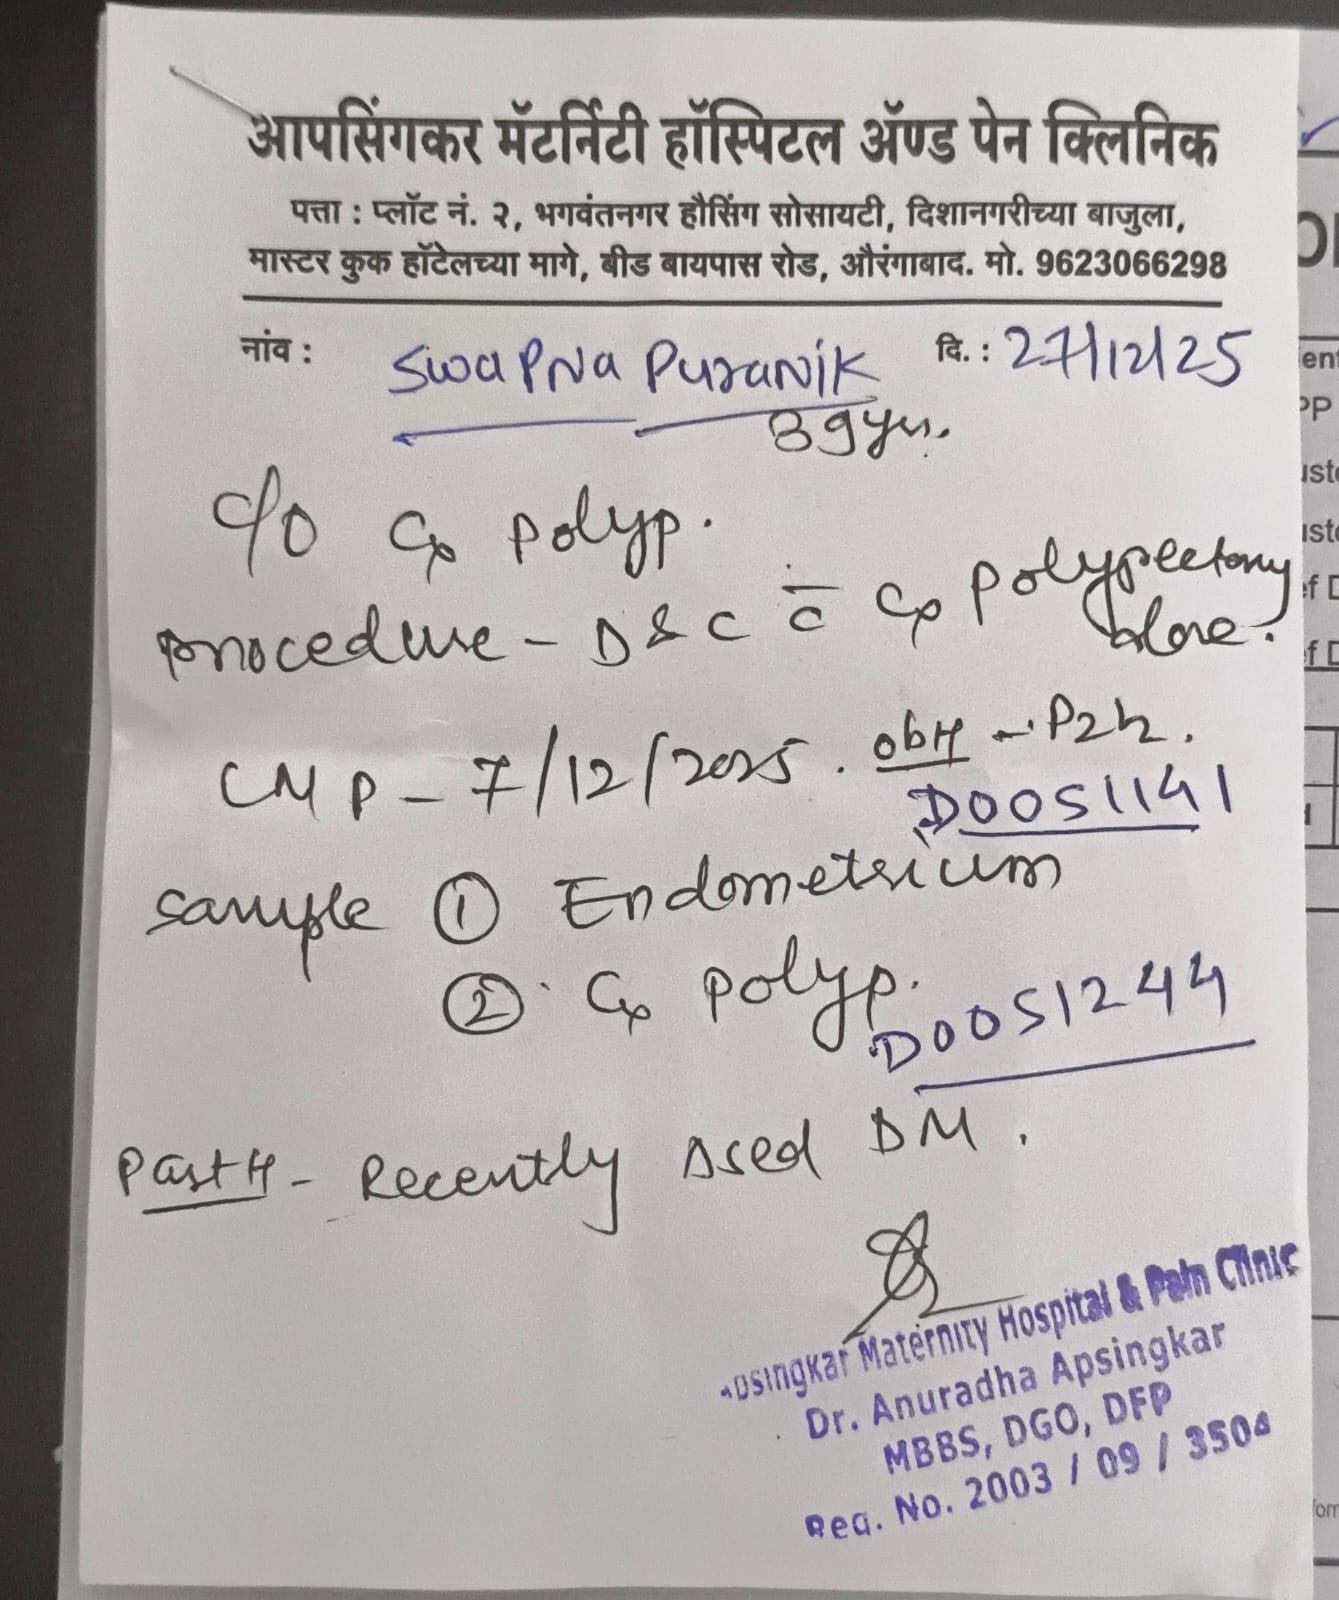 आपसिंगकर मॅटर्निटी हॉस्पिटल ॲण्ड पेन क्लिनिक
पत्ता : प्लॉट नं. २, भगवंतनगर हौसिंग सोसायटी, दिशानगरीच्या बाजुला,
मास्टर कुक हॉटेलच्या मागे, बीड बायपास रोड, औरंगाबाद. मो. 9623066298
नांव : Swapna Puranik दि. : 27/12/25
39yrs.
c/o Cx polyp.
procedure - D & C c̄ Cx polypectomy
done.
LMP - 7/12/2025. obH - P2L2.
D0051141
sample ① Endometrium
② Cx polyp.
D0051244
Past H - Recently Dsed DM.
Apsingkar Maternity Hospital & Pain Clinic
Dr. Anuradha Apsingkar
MBBS, DGO, DFP
Reg. No. 2003 / 09 / 3504